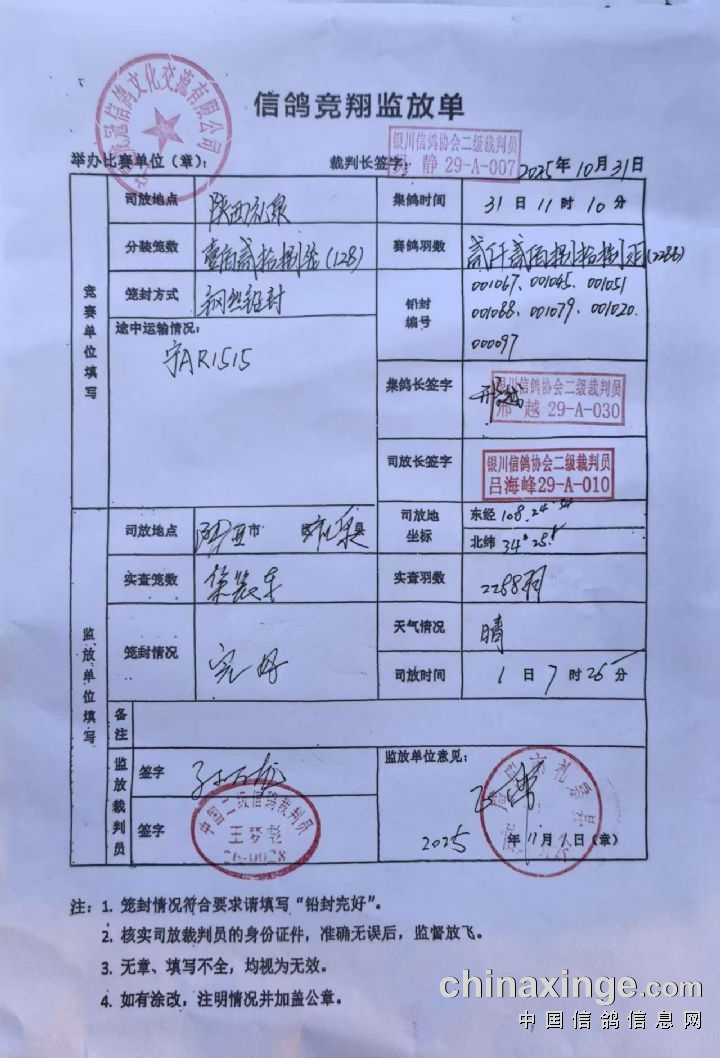 信鸽竞翔监放单
信鸽文化交流有限公司
举办比赛单位（章）：
裁判长签字：
银川信鸽协会二级裁判员
静 29-A-007
2025年10月31日
竞赛单位填写
司放地点
陕西礼泉
集鸽时间
31日11时10分
分装笼数
壹佰贰拾捌笼(128)
赛鸽羽数
贰仟贰佰捌拾捌羽(2288)
笼封方式
钢丝铅封
铅封编号
001067、001045、001051
001088、001079、001020
000097
途中运输情况：
宁AR1515
集鸽长签字
邢越
银川信鸽协会二级裁判员
邢 越 29-A-030
司放长签字
银川信鸽协会二级裁判员
吕海峰29-A-010
监放单位填写
司放地点
市
礼泉县
司放地坐标
东经 108.24
北纬 34°28
实查笼数
集装车
实查羽数
2288羽
笼封情况
完好
天气情况
晴
司放时间
1日7时25分
备注
监放裁判员
签字
签字
中国二级信鸽裁判员
监放单位意见：
2025年11月1日（章）
注：1. 笼封情况符合要求请填写“铅封完好”。
2. 核实司放裁判员的身份证件，准确无误后，监督放飞。
3. 无章、填写不全，均视为无效。
4. 如有涂改，注明情况并加盖公章。
chinaxinge.com
中国信鸽信息网